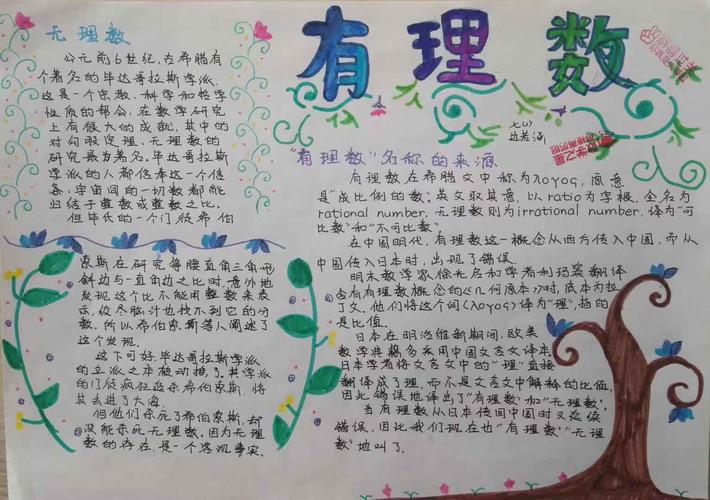 有理数
无理数
公元前6世纪,古希腊有
个著名的毕达哥拉斯学派
这是一个宗教、科学和哲学
性质的帮会,在数学研究
上有很大的成就,其中的
对勾股定理、无理数的
研究最为著名。毕达哥拉斯
学派的人都信奉这一个信
条:宇宙间的一切数都能
归结于整数或整数之比。
但毕氏的一个门徒希伯
索斯在研究等腰直角三角形
斜边与一直角边之比时,意外地
发现这个比不能用整数来表
示,绞尽脑汁也找不到它的分
数,所以希伯索斯等人阐述了
这个发现.
这下可好,毕达哥拉斯学派
的立派之本被动摇了,其学派
的门徒疯狂追杀希伯索斯,将
其丢进了大海.
但他们杀死了希伯索斯,却
没能杀死无理数。因为无理
数的存在,是一个客观事实.
七(1)
"有理数"名称的来源
有理数在希腊文中称为λογος,原意
是"成比例的数".英文取其意,以ratio为字根,全名为
rational number,无理数则为irrational number,译为"可
比数"和"不可比数"
在中国明代,有理数这一概念从西方传入中国,而从
中国传入日本时,出现了错误.
明末数学家徐光启和学者利玛窦翻译
含有有理数概念的《几何原本》时,底本为拉
丁文。他们将这个词(λογος)译为"理",指的
是比值.
日本在明治维新期间,欧美
数学典籍多采用中国文言文译本.
日本学者将文言文中的"理"直接
翻译成了理,而不是文言文中解释的比值,
因此错误地译出了"有理数"和"无理数".
当有理数从日本传回中国时又延续
错误,因此我们现在也"有理数""无理
数"地叫了.